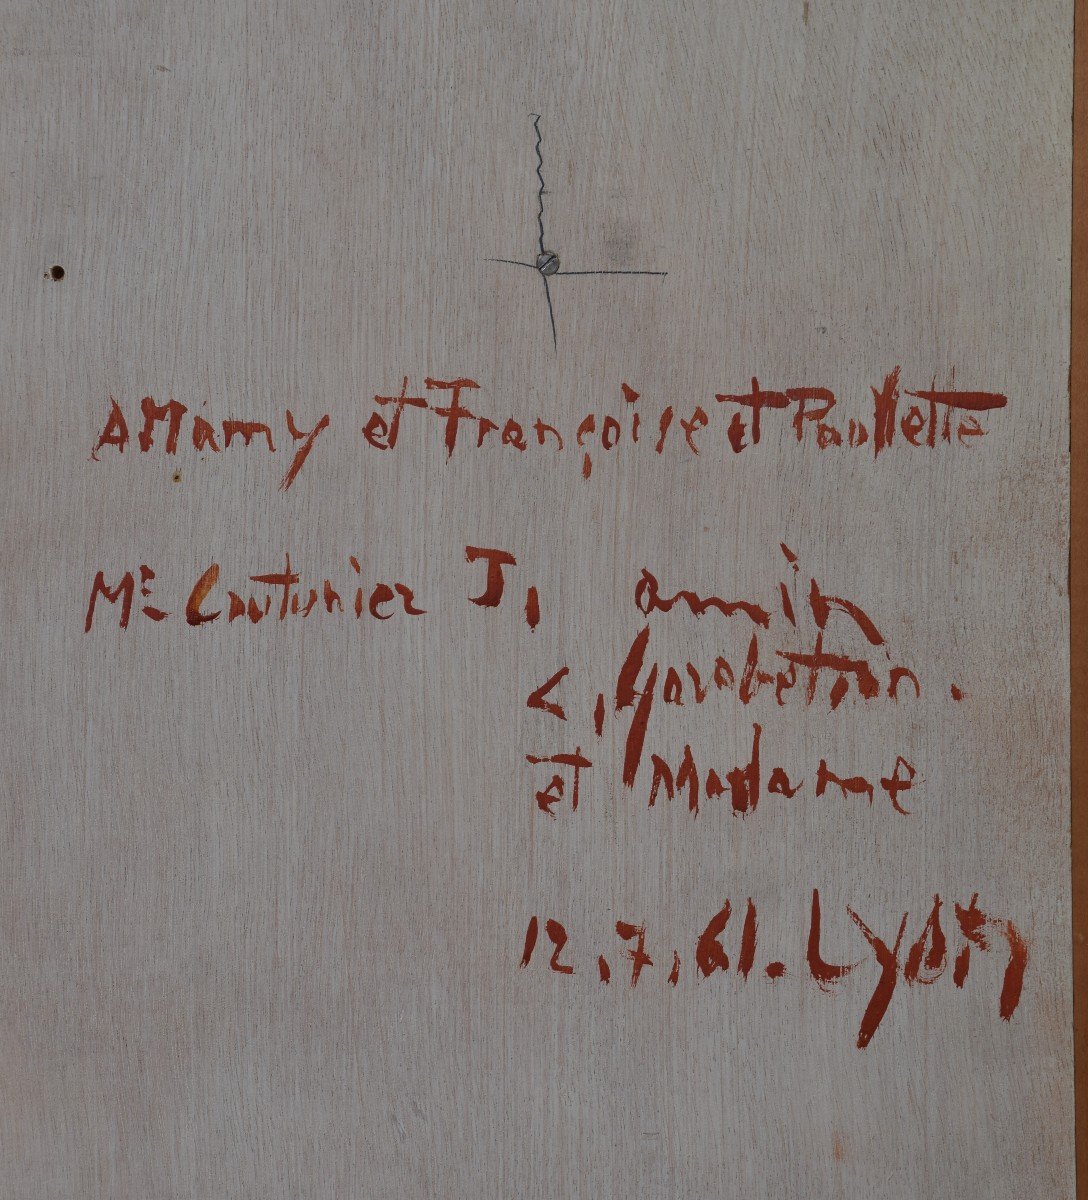 A Mamy et Françoise et Paullette
Mᴱ Couturier J, amin
C, Garabetian.
et Madame
12,7,61. Lydin